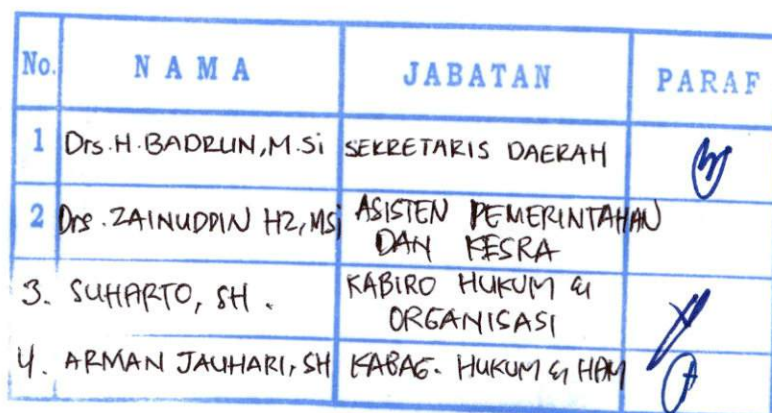 No. N A M A JABATAN PARAF
1 Drs. H. BADRUN, M.Si SEKRETARIS DAERAH
2 Drs. ZAINUDDIN HZ, MSi ASISTEN PEMERINTAHAN
DAN KESRA
3. SUHARTO, SH. KABIRO HUKUM &
ORGANISASI
4. ARMAN JAUHARI, SH KABAG. HUKUM & HAM